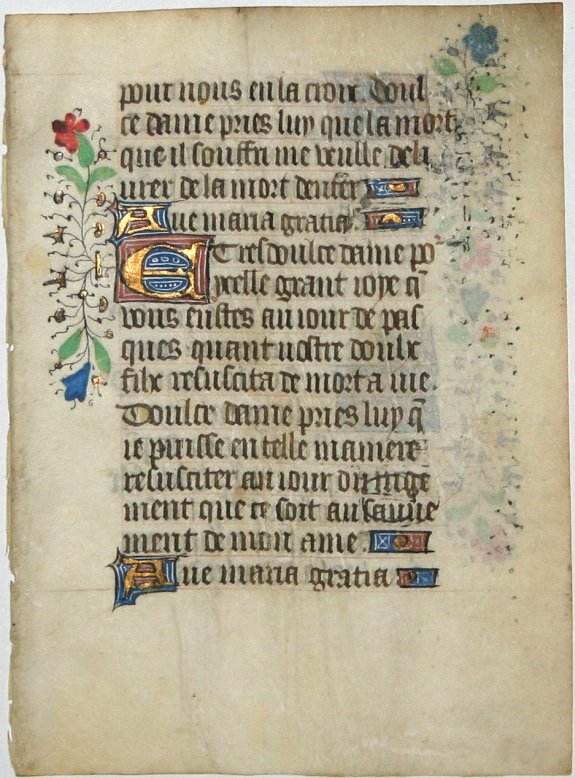 pour nous en la croix. Doul
ce dame pries luy que la mort
que il souffri me veulle deli
urer de la mort denfer.
Aue maria gratia.
E Tresdoulce dame po
ycelle grant ioye q̄
vous eustes au iour de pas
ques quant uostre doulx
filz resuscita de mort a uie.
Doulce dame pries luy q̄
ie puisse en telle maniere
resusciter au iour du iuge
ment que ce soit au sauue
ment de mon ame.
Aue maria gratia